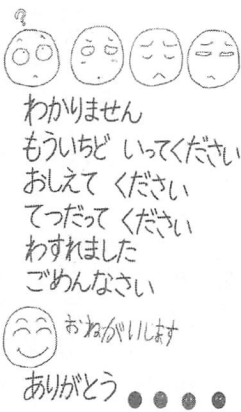 ?
わかりません
もういちど いってください
おしえて ください
てつだって ください
わすれました
ごめんなさい
おねがいします
ありがとう